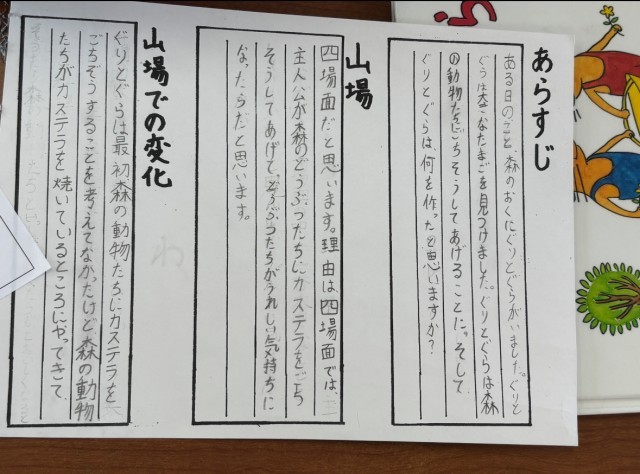 あらすじ
ある日のこと、森のおくにぐりとぐらがいました。ぐりと
ぐらは大きなたまごを見つけました。ぐりとぐらは森
の動物たちにごちそうしてあげることに。そして
ぐりとぐらは、何を作ったと思いますか?
山場
四場面だと思います。理由は、四場面では、
主人公が森のどうぶつたちにカステラをごち
そうしてあげて、どうぶつたちがうれしい気持ちに
なったらだと思います。
山場での変化
ぐりとぐらは最初森の動物たちにカステラを
ごちそうすることを考えてなかたけど森の動物
たちがカステラを焼いているところにやってきて
ら
わ